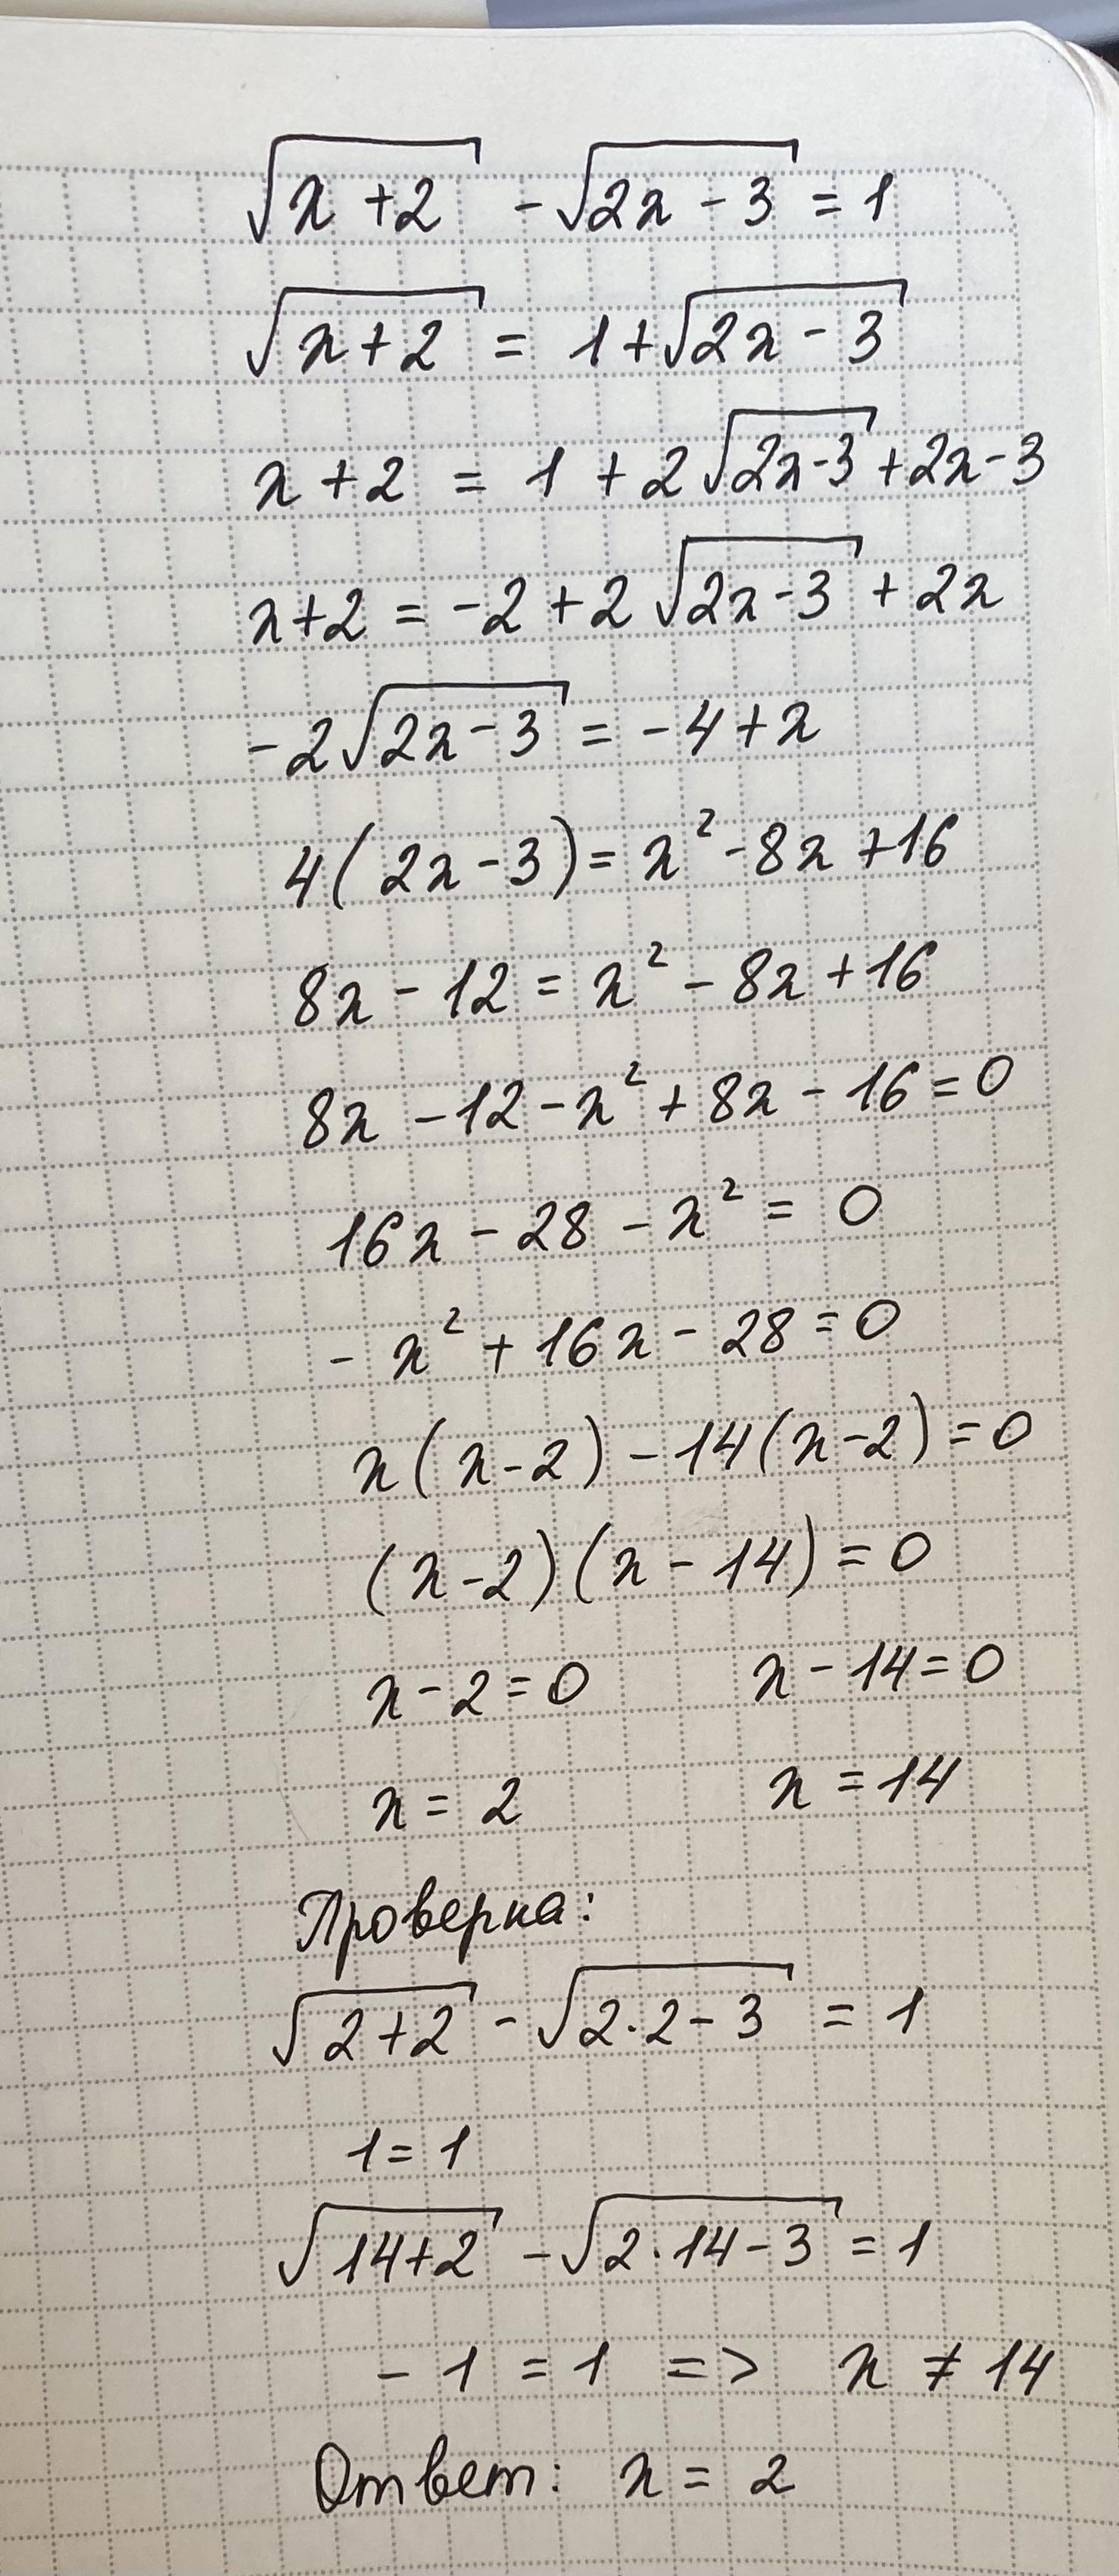 √(x + 2) - √(2x - 3) = 1
√(x + 2) = 1 + √(2x - 3)
x + 2 = 1 + 2√(2x - 3) + 2x - 3
x + 2 = -2 + 2√(2x - 3) + 2x
-2√(2x - 3) = -4 + x
4(2x - 3) = x² - 8x + 16
8x - 12 = x² - 8x + 16
8x - 12 - x² + 8x - 16 = 0
16x - 28 - x² = 0
- x² + 16x - 28 = 0
x(x - 2) - 14(x - 2) = 0
(x - 2)(x - 14) = 0
x - 2 = 0 x - 14 = 0
x = 2 x = 14
Проверка:
√(2 + 2) - √(2·2 - 3) = 1
1 = 1
√(14 + 2) - √(2·14 - 3) = 1
- 1 = 1 => x ≠ 14
Ответ: x = 2